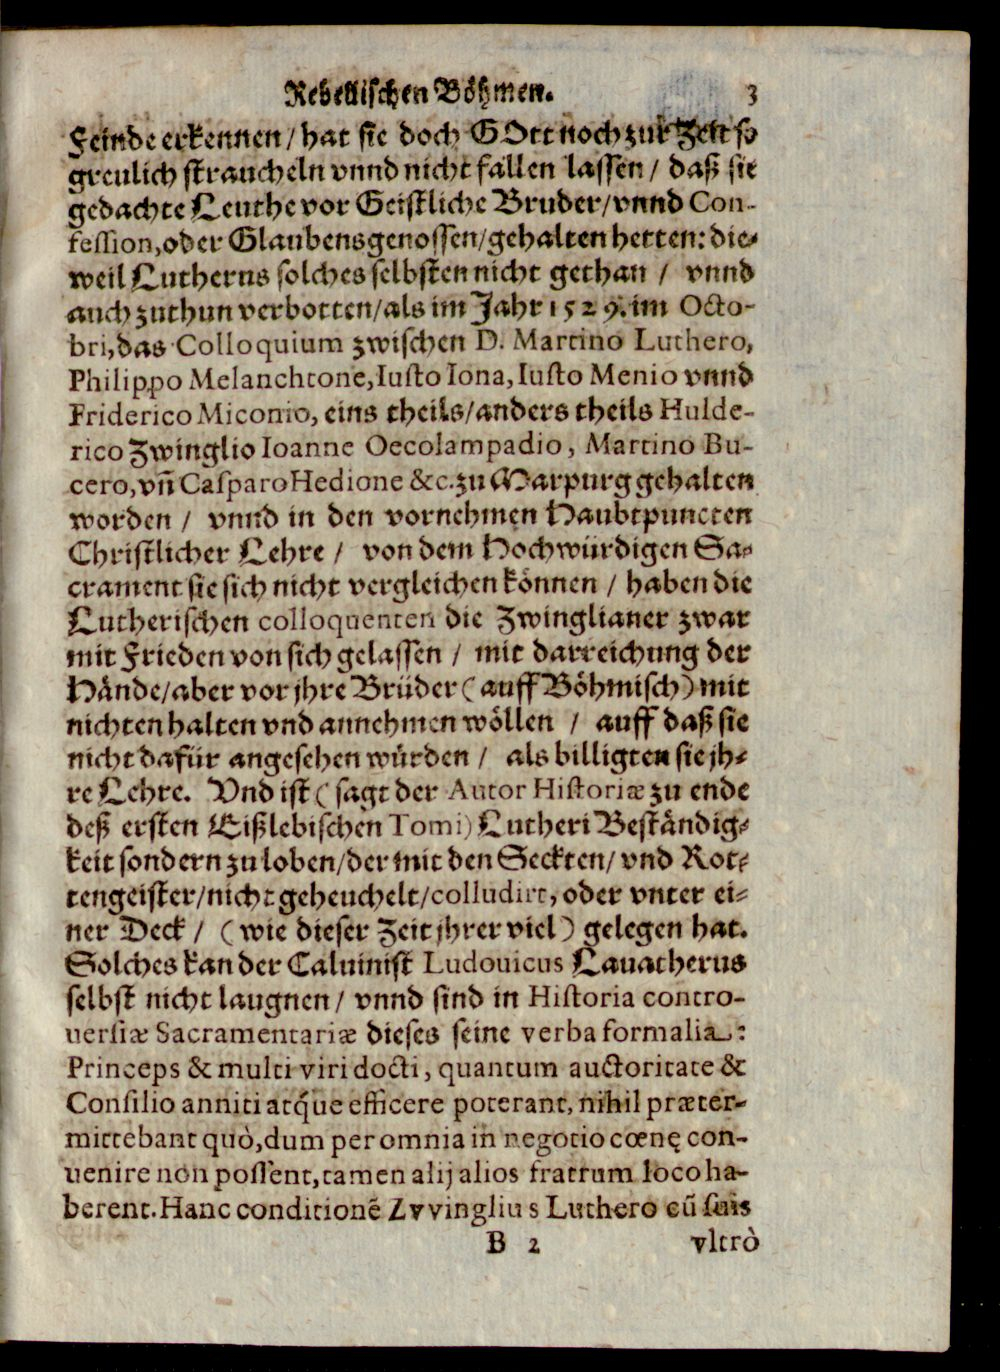 Rebellischen Böhmen. 3
Feinde erkennen/ hat sie doch GOtt noch zur Zeit so
greulich straucheln vnnd nicht fallen lassen/ daß sie
gedachte Leuthe vor Geistliche Bruder/ vnnd Con-
fession, oder Glaubensgenossen/ gehalten hetten: die-
weil Lutherus solches selbsten nicht gethan/ vnnd
auch zuthun verbotten/ als im Jahr 1529. im Octo-
bri, das Colloquium zwischen D. Martino Luthero,
Philippo Melanchtone, Iusto Iona, Iusto Menio vnnd
Friderico Miconio, eins theils/ anders theils Hulde-
rico Zwinglio Ioanne Oecolampadio, Martino Bu-
cero, vñ Casparo Hedione &c. zu Marpurg gehalten
worden/ vnnd in den vornehmen Haubtpuncten
Christlicher Lehre/ von dem Hochwürdigen Sa-
crament sie sich nicht vergleichen können/ haben die
Lutherischen colloquenten die Zwinglianer zwar
mit Frieden von sich gelassen/ mit darreichung der
Hände/ aber vor jhre Brüder (auff Böhmisch) mit
nichten halten vnd annehmen wöllen/ auff daß sie
nicht dafür angesehen würden/ als billigten sie jh-
re Lehre. Vnd ist (sagt der Autor Historiæ zu ende
deß ersten Eißlebischen Tomi) Lutheri Beständig-
keit sondern zu loben/ der mit den Seckten/ vnd Rot-
tengeister/ nicht geheuchelt/ colludirt, oder vnter ei-
ner Deck/ (wie dieser Zeit jhrer viel) gelegen hat.
Solches kan der Caluinist Ludouicus Lauatherus
selbst nicht laugnen/ vnnd sind in Historia contro-
uersiæ Sacramentariæ dieses seine verba formalia:
Princeps & multi viri docti, quantum auctoritate &
Consilio anniti atq́ue efficere poterant, nihil præter-
mittebant quò, dum per omnia in negotio cœnę con-
uenire non possent, tamen alij alios fratrum loco ha-
berent. Hanc conditionẽ Zvvinglius Luthero cũ suis
B 2 vltrò